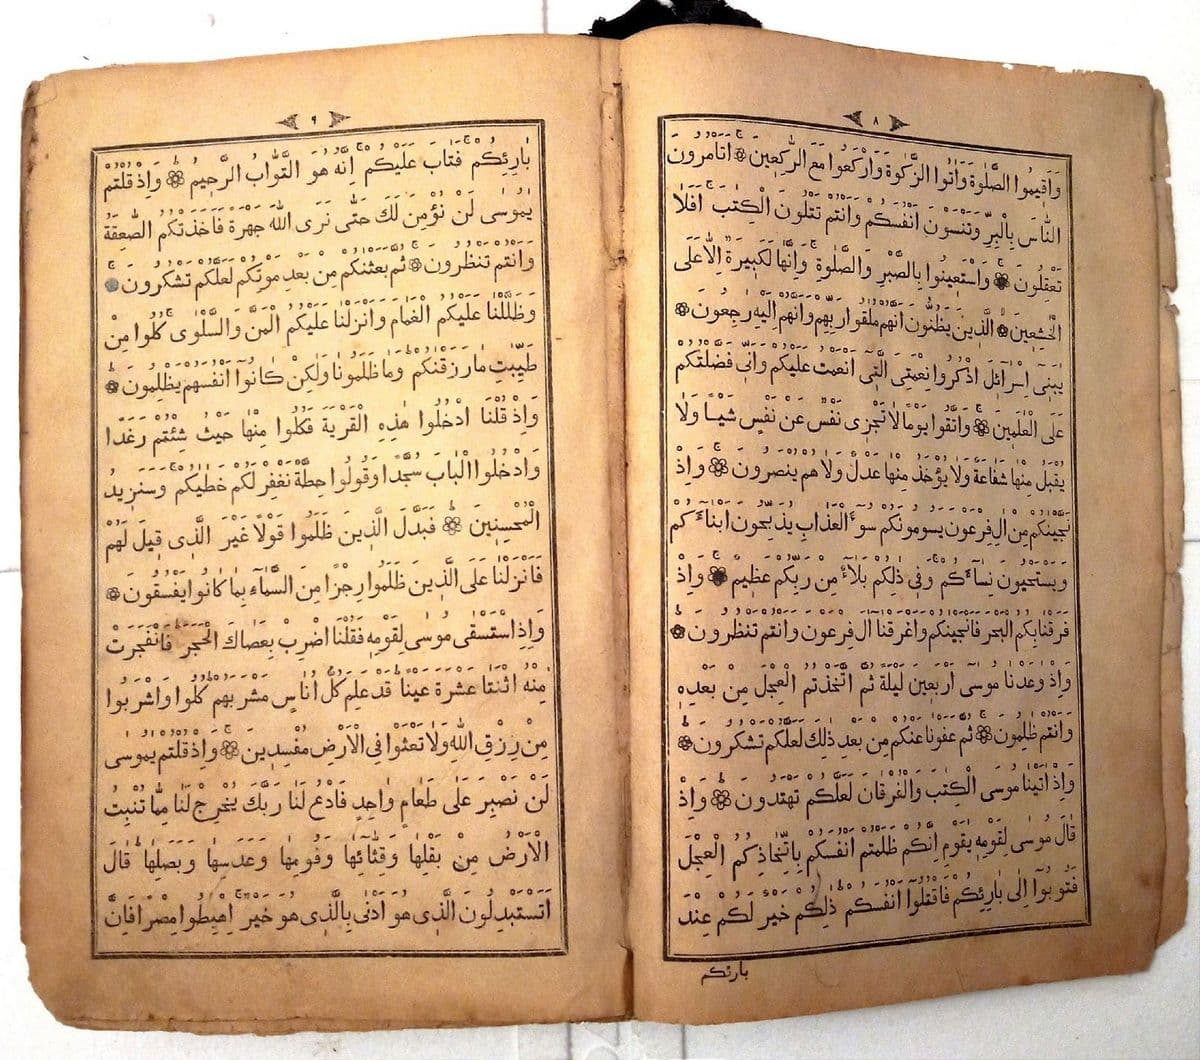 ٨
وَاَقٖيمُوا الصَّلٰوةَ وَاٰتُوا الزَّكٰوةَ وَارْكَعُوا مَعَ الرَّاكِعٖينَ ۞ اَتَاْمُرُونَ
النَّاسَ بِالْبِرِّ وَتَنْسَوْنَ اَنْفُسَكُمْ وَاَنْتُمْ تَتْلُونَ الْكِتَابَ اَفَلَا
تَعْقِلُونَ ۞ وَاسْتَعٖينُوا بِالصَّبْرِ وَالصَّلٰوةِ وَاِنَّهَا لَكَبٖيرَةٌ اِلَّا عَلَى
الْخَاشِعٖينَ ۞ اَلَّذٖينَ يَظُنُّونَ اَنَّهُمْ مُلَاقُوا رَبِّهِمْ وَاَنَّهُمْ اِلَيْهِ رَاجِعُونَ ۞
يَابَنٖى اِسْرَآئٖلَ اذْكُرُوا نِعْمَتِىَ الَّتٖٓى اَنْعَمْتُ عَلَيْكُمْ وَاَنّٖى فَضَّلْتُكُمْ
عَلَى الْعَالَمٖينَ ۞ وَاتَّقُوا يَوْمًا لَا تَجْزٖى نَفْسٌ عَنْ نَفْسٍ شَيْـًٔا وَلَا
يُقْبَلُ مِنْهَا شَفَاعَةٌ وَلَا يُؤْخَذُ مِنْهَا عَدْلٌ وَلَا هُمْ يُنْصَرُونَ ۞ وَاِذْ
نَجَّيْنَاكُمْ مِنْ اٰلِ فِرْعَوْنَ يَسُومُونَكُمْ سُوٓءَ الْعَذَابِ يُذَبِّحُونَ اَبْنَآءَكُمْ
وَيَسْتَحْيُونَ نِسَآءَكُمْ وَفٖى ذٰلِكُمْ بَلَآءٌ مِنْ رَبِّكُمْ عَظٖيمٌ ۞ وَاِذْ
فَرَقْنَا بِكُمُ الْبَحْرَ فَاَنْجَيْنَاكُمْ وَاَغْرَقْنَا اٰلَ فِرْعَوْنَ وَاَنْتُمْ تَنْظُرُونَ ۞
وَاِذْ وٰعَدْنَا مُوسٰٓى اَرْبَعٖينَ لَيْلَةً ثُمَّ اتَّخَذْتُمُ الْعِجْلَ مِنْ بَعْدِهٖ
وَاَنْتُمْ ظَالِمُونَ ۞ ثُمَّ عَفَوْنَا عَنْكُمْ مِنْ بَعْدِ ذٰلِكَ لَعَلَّكُمْ تَشْكُرُونَ ۞
وَاِذْ اٰتَيْنَا مُوسَى الْكِتَابَ وَالْفُرْقَانَ لَعَلَّكُمْ تَهْتَدُونَ ۞ وَاِذْ
قَالَ مُوسٰى لِقَوْمِهٖ يَاقَوْمِ اِنَّكُمْ ظَلَمْتُمْ اَنْفُسَكُمْ بِاتِّخَاذِكُمُ الْعِجْلَ
فَتُوبُوٓا اِلٰى بَارِئِكُمْ فَاقْتُلُوٓا اَنْفُسَكُمْ ذٰلِكُمْ خَيْرٌ لَكُمْ عِنْدَ
بارئكم
٩
بَارِئِكُمْ فَتَابَ عَلَيْكُمْ اِنَّهُ هُوَ التَّوَّابُ الرَّحٖيمُ ۞ وَاِذْ قُلْتُمْ
يَامُوسٰى لَنْ نُؤْمِنَ لَكَ حَتّٰى نَرَى اللّٰهَ جَهْرَةً فَاَخَذَتْكُمُ الصَّاعِقَةُ
وَاَنْتُمْ تَنْظُرُونَ ۞ ثُمَّ بَعَثْنَاكُمْ مِنْ بَعْدِ مَوْتِكُمْ لَعَلَّكُمْ تَشْكُرُونَ ۞
وَظَلَّلْنَا عَلَيْكُمُ الْغَمَامَ وَاَنْزَلْنَا عَلَيْكُمُ الْمَنَّ وَالسَّلْوٰى كُلُوا مِنْ
طَيِّبَاتِ مَا رَزَقْنَاكُمْ وَمَا ظَلَمُونَا وَلٰكِنْ كَانُوٓا اَنْفُسَهُمْ يَظْلِمُونَ ۞
وَاِذْ قُلْنَا ادْخُلُوا هٰذِهِ الْقَرْيَةَ فَكُلُوا مِنْهَا حَيْثُ شِئْتُمْ رَغَدًا
وَادْخُلُوا الْبَابَ سُجَّدًا وَقُولُوا حِطَّةٌ نَغْفِرْ لَكُمْ خَطَايَاكُمْ وَسَنَزٖيدُ
الْمُحْسِنٖينَ ۞ فَبَدَّلَ الَّذٖينَ ظَلَمُوا قَوْلًا غَيْرَ الَّذٖى قٖيلَ لَهُمْ
فَاَنْزَلْنَا عَلَى الَّذٖينَ ظَلَمُوا رِجْزًا مِنَ السَّمَآءِ بِمَا كَانُوا يَفْسُقُونَ ۞
وَاِذِ اسْتَسْقٰى مُوسٰى لِقَوْمِهٖ فَقُلْنَا اضْرِبْ بِعَصَاكَ الْحَجَرَ فَانْفَجَرَتْ
مِنْهُ اثْنَتَا عَشْرَةَ عَيْنًا قَدْ عَلِمَ كُلُّ اُنَاسٍ مَشْرَبَهُمْ كُلُوا وَاشْرَبُوا
مِنْ رِزْقِ اللّٰهِ وَلَا تَعْثَوْا فِى الْاَرْضِ مُفْسِدٖينَ ۞ وَاِذْ قُلْتُمْ يَامُوسٰى
لَنْ نَصْبِرَ عَلٰى طَعَامٍ وَاحِدٍ فَادْعُ لَنَا رَبَّكَ يُخْرِجْ لَنَا مِمَّا تُنْبِتُ
الْاَرْضُ مِنْ بَقْلِهَا وَقِثَّآئِهَا وَفُومِهَا وَعَدَسِهَا وَبَصَلِهَا قَالَ
اَتَسْتَبْدِلُونَ الَّذٖى هُوَ اَدْنٰى بِالَّذٖى هُوَ خَيْرٌ اِهْبِطُوا مِصْرًا فَاِنَّ